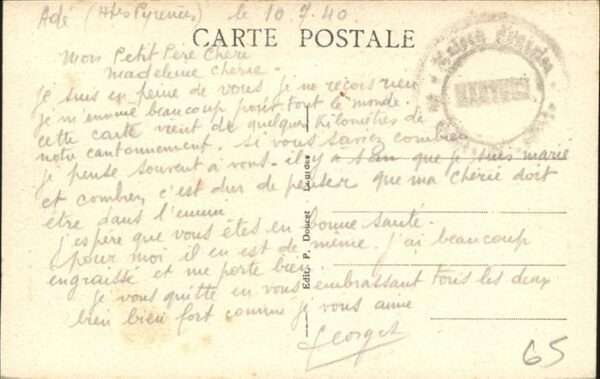 Adé (Htes Pyrenees) le 10.7.40
CARTE POSTALE
Mon Petit Père Chère
Madeleine cherie.
je suis en peine de vous, je ne reçois rien
je m ennuie beaucoup pour tout le monde.
cette carte vient de quelques Kilometres de
notre cantonnement. Si vous saviez combien
je pense souvent à vous. il y a 1 an que je suis marié
et combien c'est dur de penser que ma chérie doit
être dans l'ennui.
j'espère que vous êtes en bonne santé.
pour moi il en est de même. j'ai beaucoup
engraissé et me porte bien
Je vous quitte en vous embrassant tous les deux
bien bien fort comme je vous aime
Georges
Edit. P. Doucet Lourdes
65